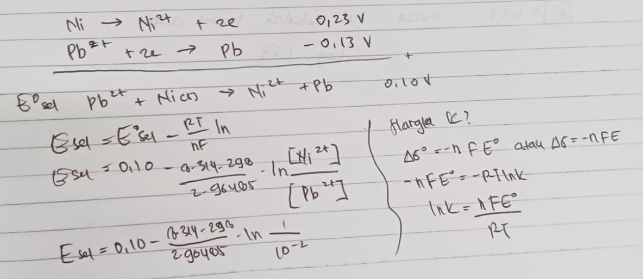 Ni → Ni²⁺ + 2e 0,23 V
Pb²⁺ + 2e → Pb - 0,13 V
+
E⁰sel Pb²⁺ + Ni(s) → Ni²⁺ + Pb 0,10 V
Esel = E°sel - RT/nF ln
Esel = 0,10 - 8.314-298/2-96485 . ln [Ni²⁺]/[Pb²⁺]
Esel = 0,10 - 8.314-298/2 96485 . ln 1/10⁻²
Harga K?
ΔG° = -n F E° atau ΔG = -nFE
-nFE° = -RT ln K
ln K = nFE°/RT